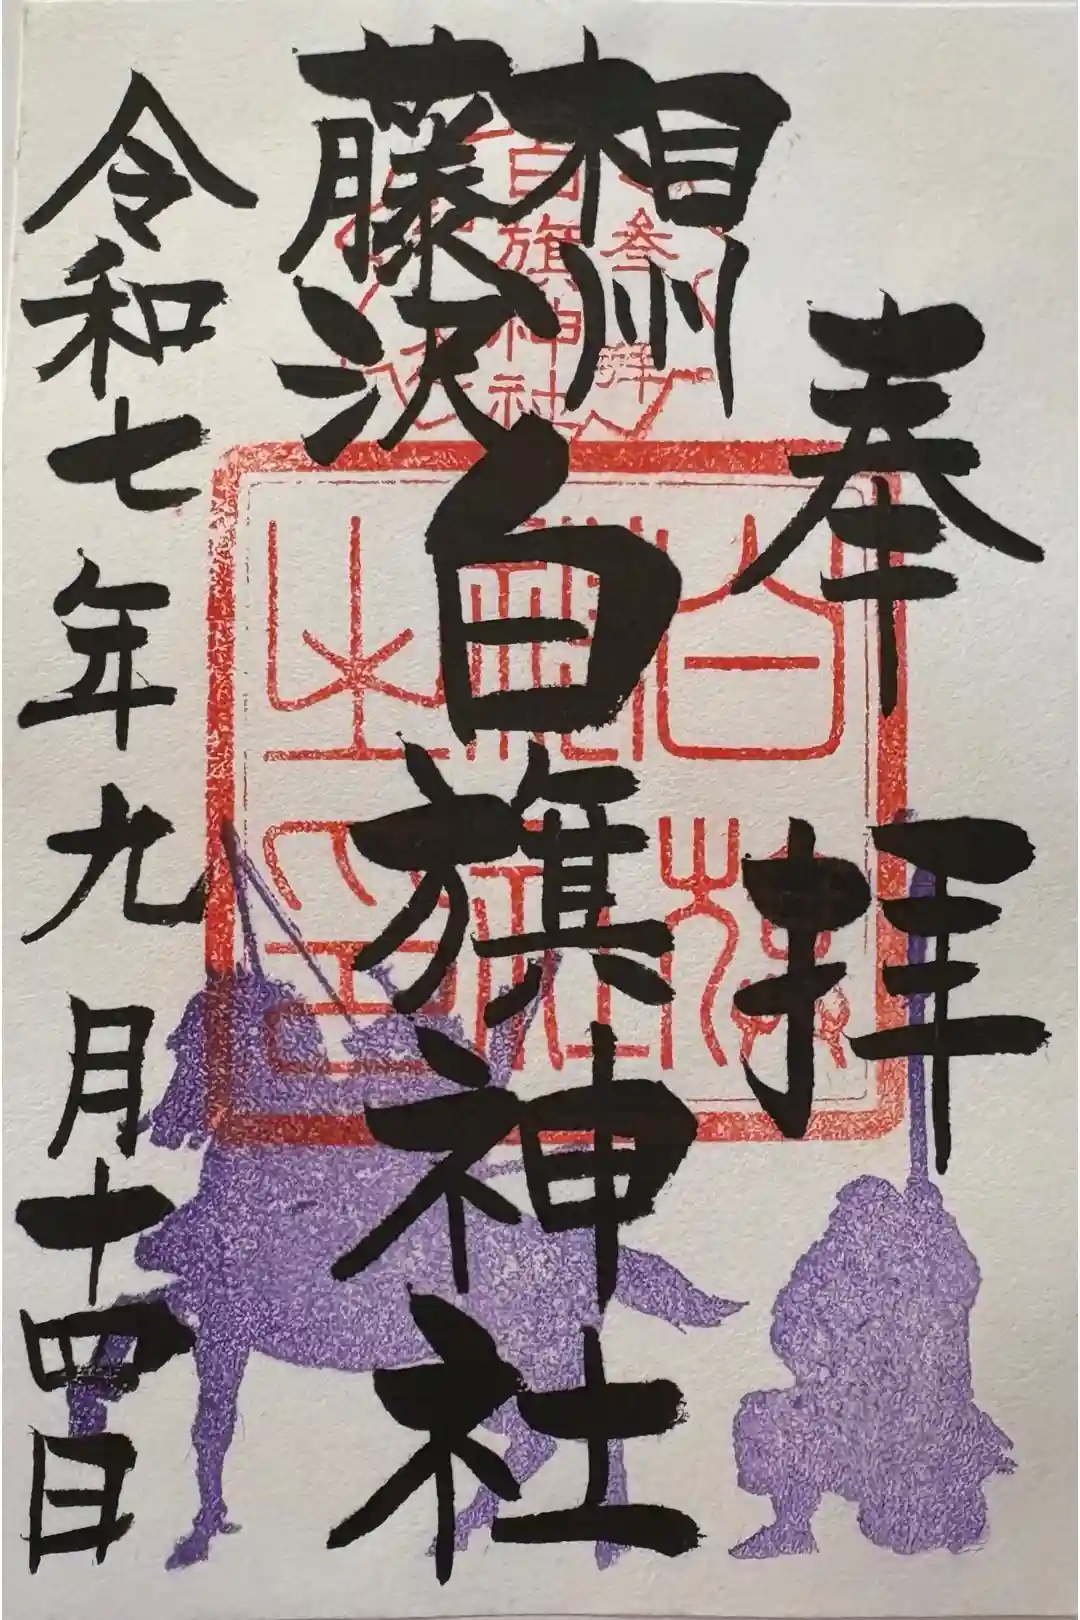 奉拝
相州
藤沢
白旗神社
令和七年九月十四日
参拝
白旗神社
白旗神社之印